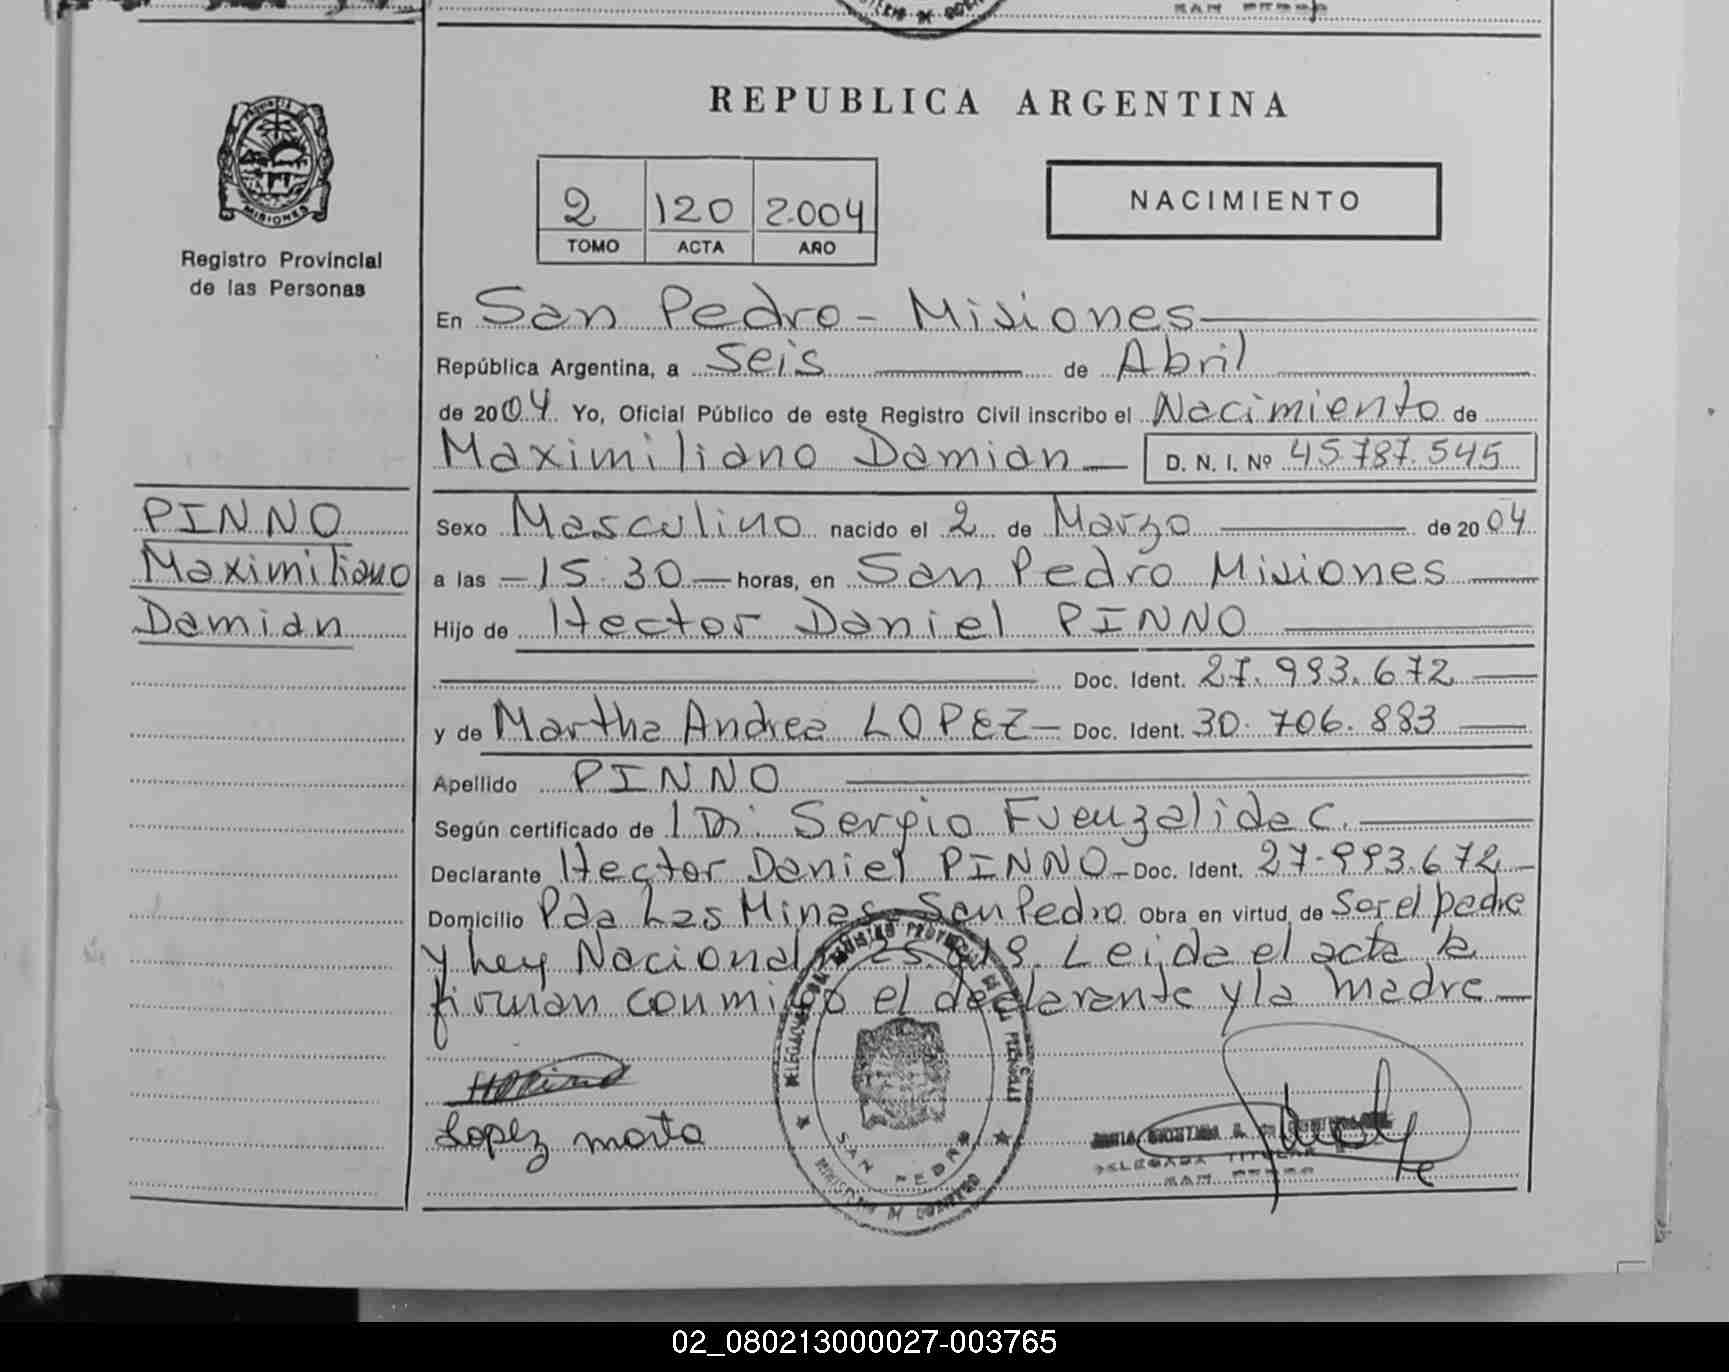 REPUBLICA ARGENTINA
MISIONES
Registro Provincial
de las Personas
2 120 2.004
TOMO ACTA AÑO
NACIMIENTO
En San Pedro - Misiones
República Argentina, a Seis de Abril
de 2004 Yo, Oficial Público de este Registro Civil inscribo el Nacimiento de
Maximiliano Damian D. N. I. Nº 45.787.545
PINNO
Maximiliano
Damian
Sexo Masculino nacido el 2 de Marzo de 2004
a las 15:30 horas, en San Pedro Misiones
Hijo de Hector Daniel PINNO
Doc. Ident. 27.993.672
y de Martha Andrea LOPEZ Doc. Ident. 30.706.883
Apellido PINNO
Según certificado de Sergio Fuenzalida C.
Declarante Hector Daniel PINNO Doc. Ident. 27.993.672
Domicilio Pda Las Minas San Pedro Obra en virtud de Ser el padre
y Ley Nacional Leida el acta la
firman conmigo el declarante y la madre
Lopez marta
DELEGADA TITULAR
SAN PEDRO
SAN PEDRO
02_080213000027-003765